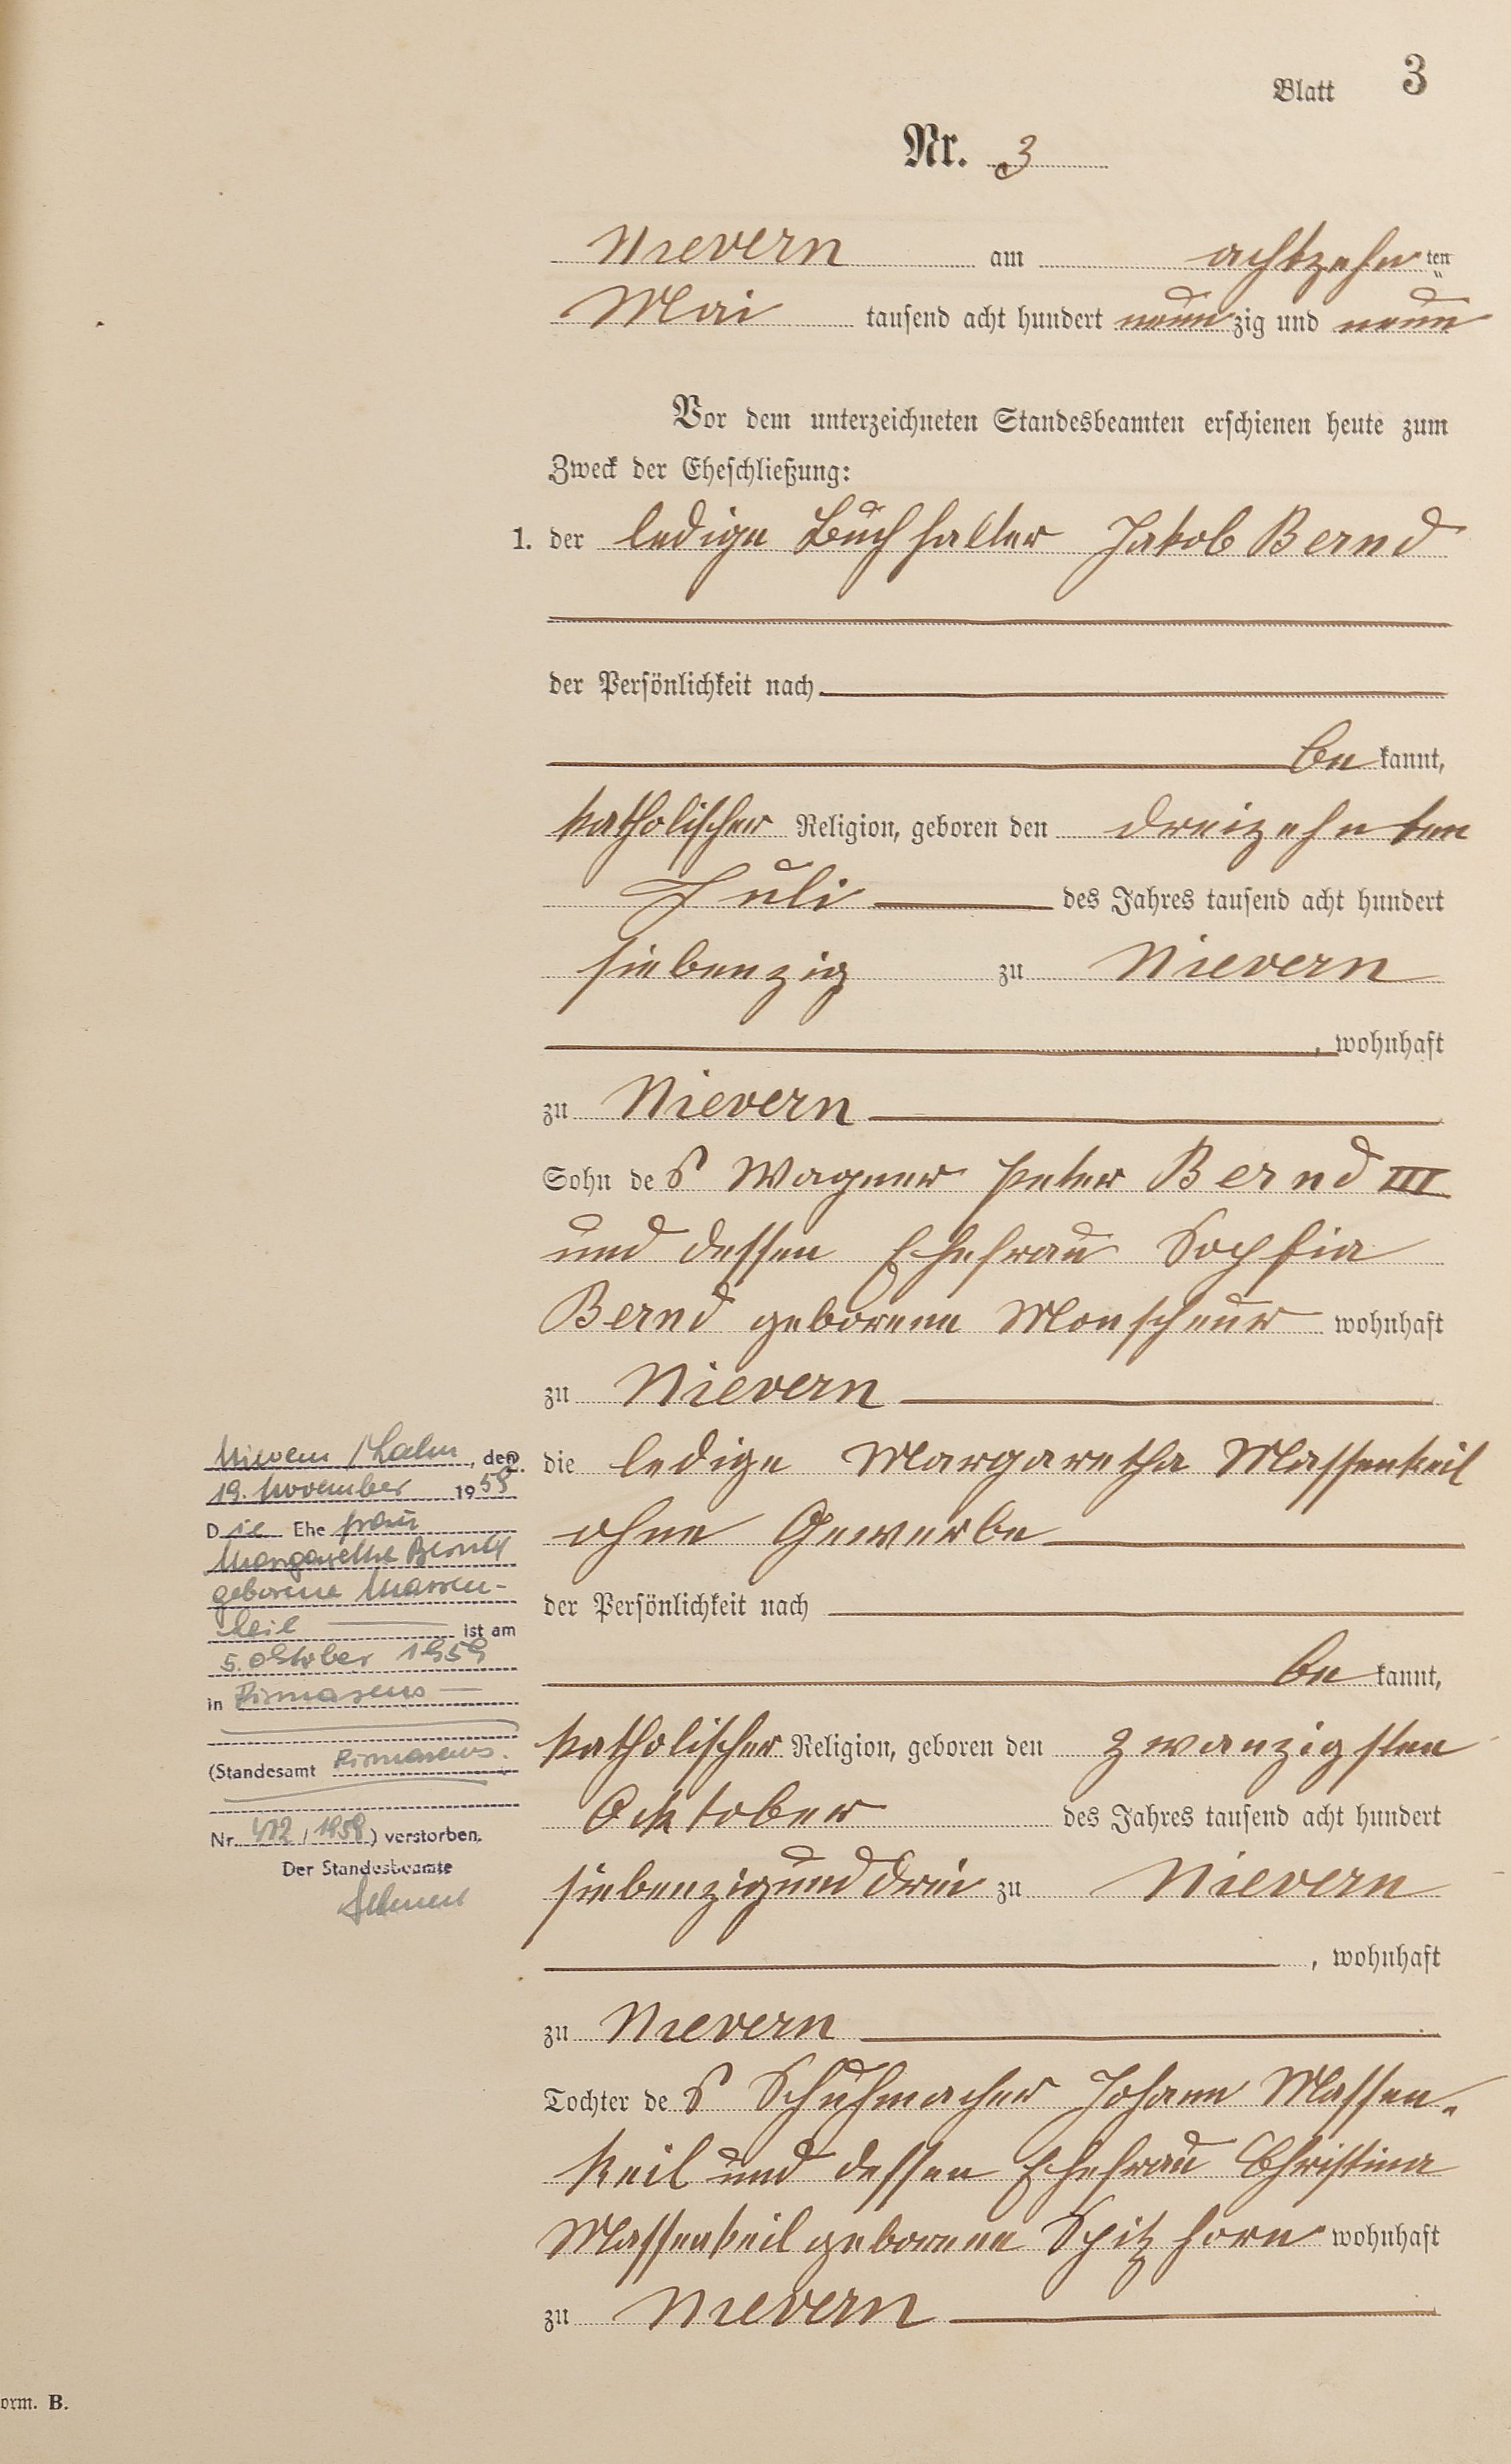 Blatt 3
Nr. 3
Nievern am achtzehnten
Mai tausend acht hundert neunzig und neun
Vor dem unterzeichneten Standesbeamten erschienen heute zum
Zweck der Eheschließung:
1. der ledige Buchhalter Jakob Bernd
der Persönlichkeit nach
bekannt,
katholischer Religion, geboren den dreizehnten
Juli des Jahres tausend acht hundert
siebenzig zu Nievern
, wohnhaft
zu Nievern
Sohn des Wagner Peter Bernd III
und dessen Ehefrau Sophia
Bernd geborene Monscheur wohnhaft
zu Nievern
2. die ledige Margaretha Massenkeil
ohne Gewerbe
der Persönlichkeit nach
bekannt,
katholischer Religion, geboren den zwanzigsten
Oktober des Jahres tausend acht hundert
siebenzig und drei zu Nievern
, wohnhaft
zu Nievern
Tochter des Schuhmacher Johann Massen-
keil und dessen Ehefrau Christina
Massenkeil geborene Spitzhorn wohnhaft
zu Nievern
Nievern / Lahn, den
19. November 1959
Die Ehefrau
Margarethe Bernd
geborene Massen-
keil ist am
5. Oktober 1959
in Pirmasens
(Standesamt Pirmasens.
Nr. 412 / 1959) verstorben.
Der Standesbeamte
orm. B.